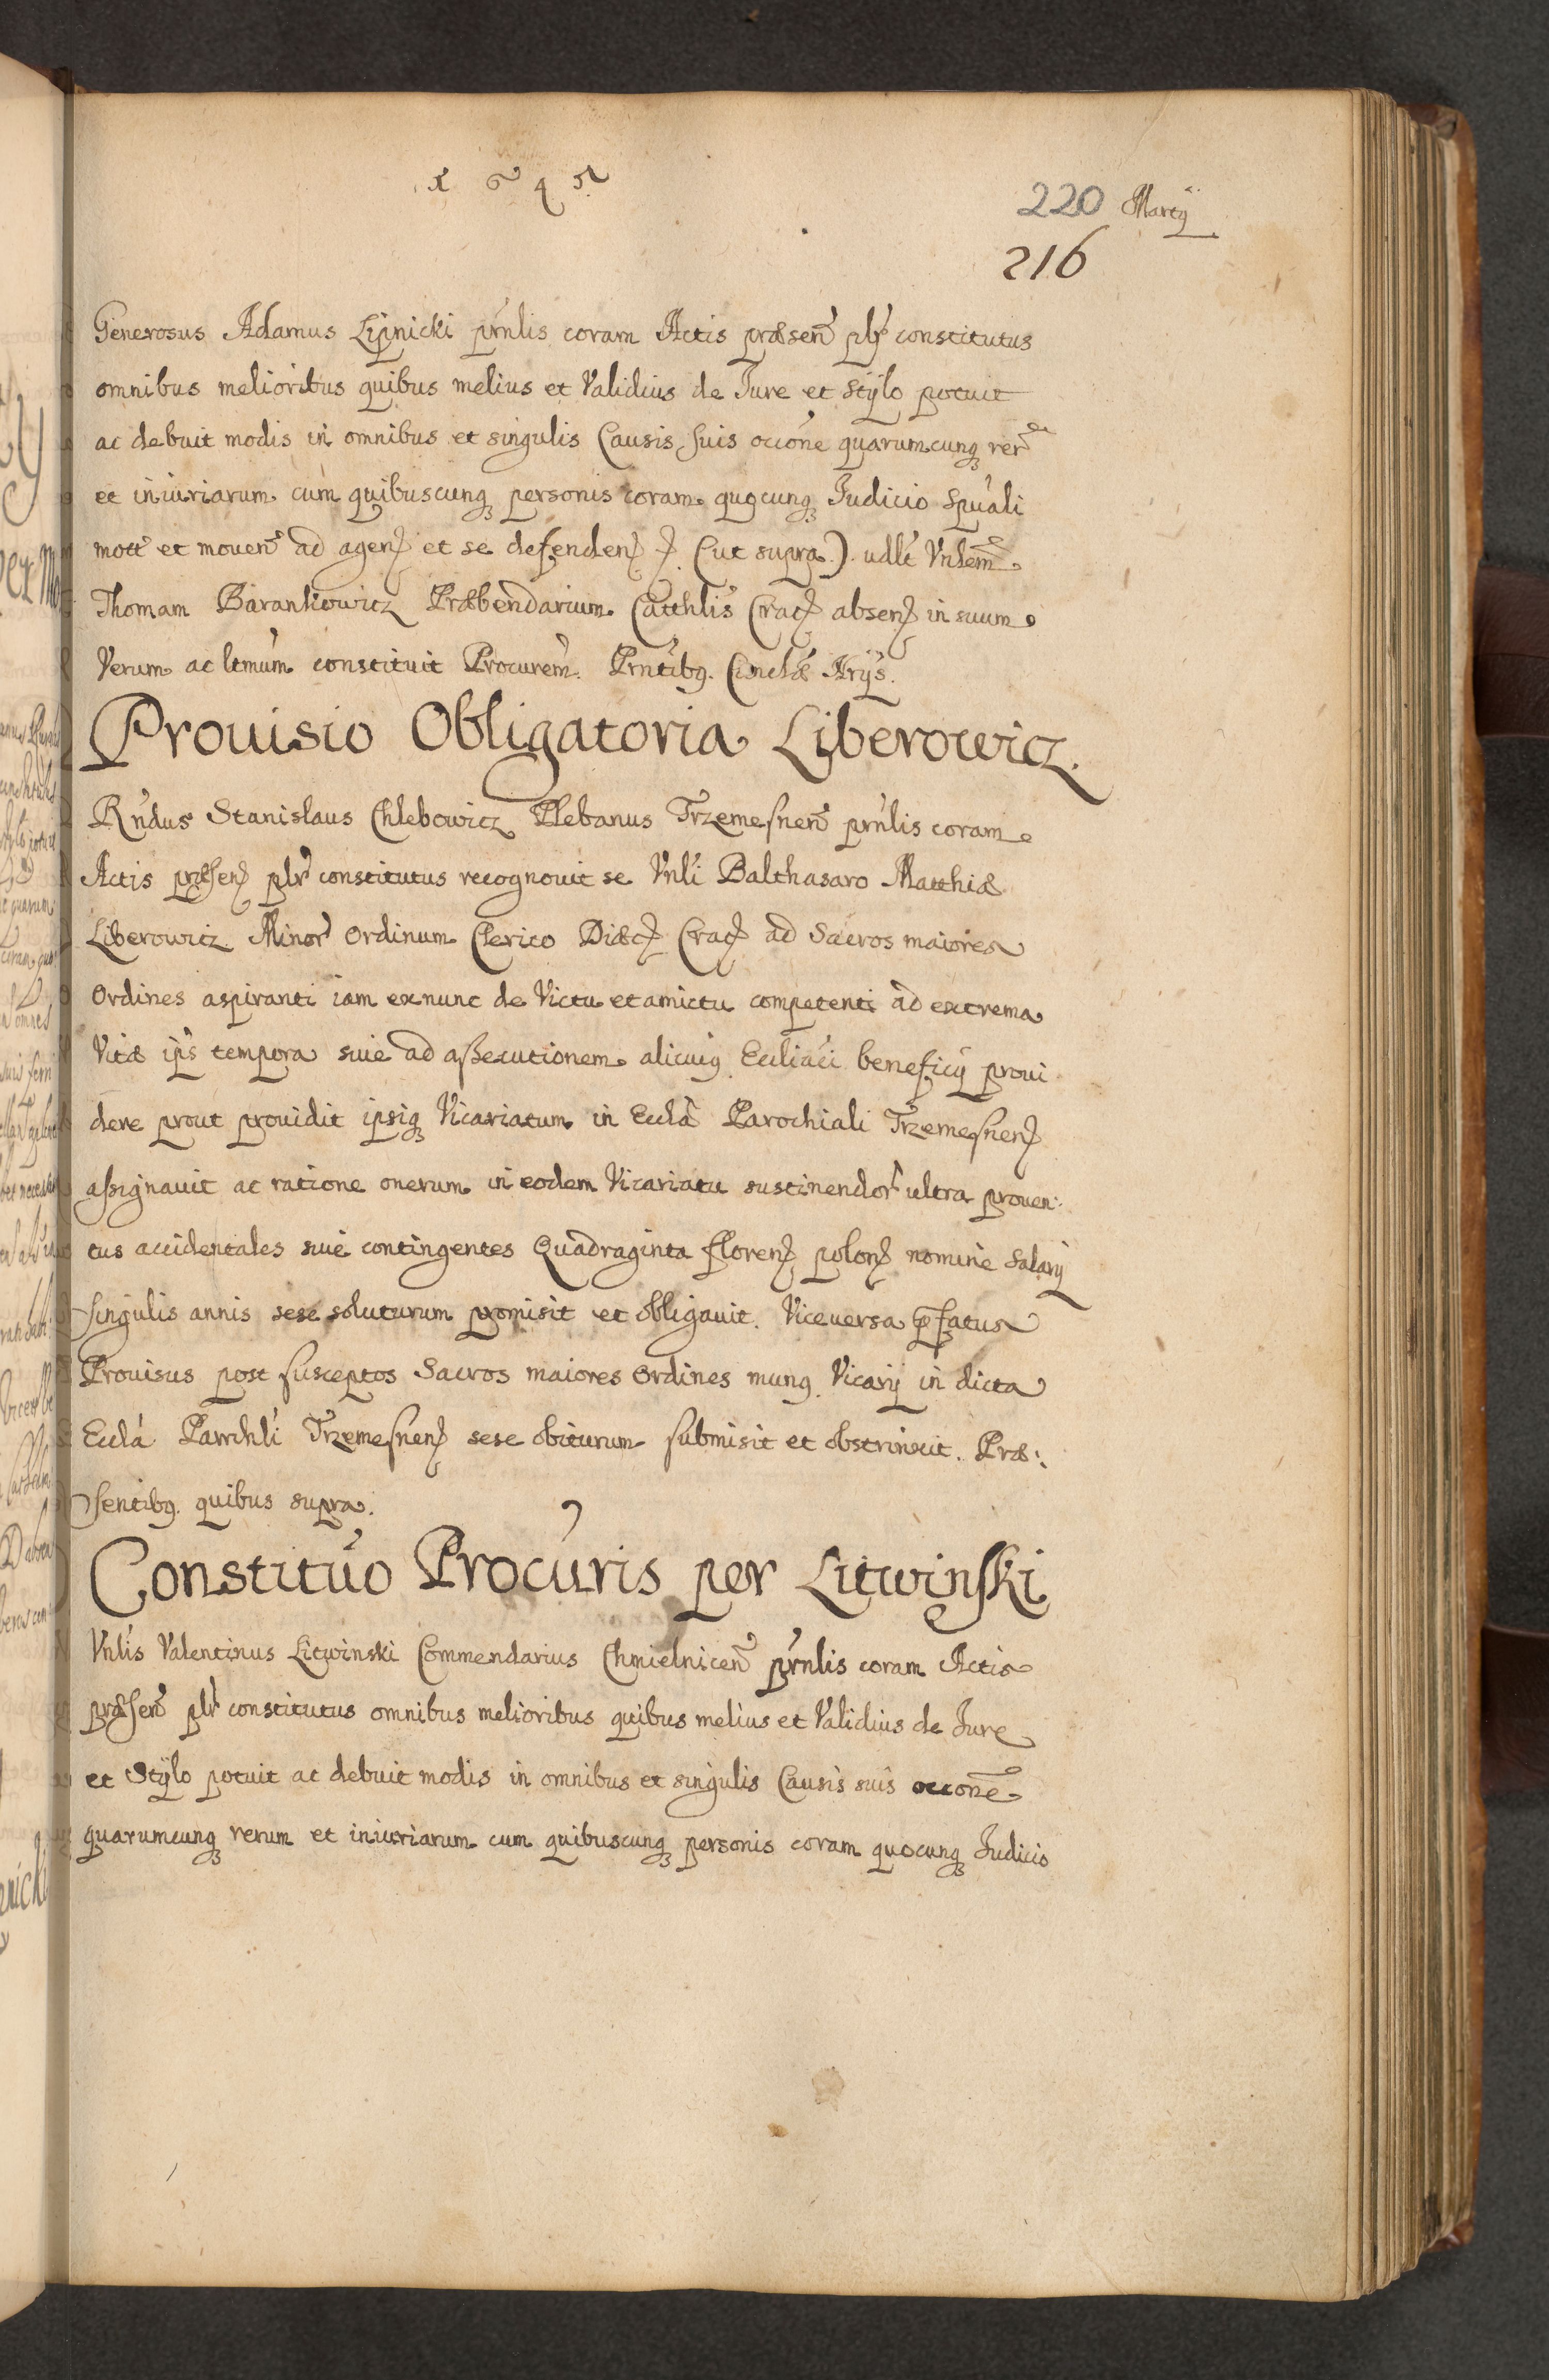 1645
220 Martÿ
216
Generosus Adamus Lipnicki prńlis coram Actis præsen̄ plr̄ constitutus
omnibus melioribus quibus melius et Validius de Jure et stÿlo potuit
ac debuit modis in omnibus et singulis Causis suis occōne quarumcunqꝫ rer̄
et iniuriarum cum quibuscunqꝫ personis coram quocunqꝫ Judicio Spuáli
mott̄ et mouen̄ ad agenꝭ et se defendenꝭ ꝭ (ut supra). udlt́ Vnlem̄
Thomam Barankowicz Præbendarium Catthlis Cracꝭ absenꝭ in suum
Verum ac ltmúm constituit Procurem̄. Prńtibꝯ. Cmchæ Arÿs.
Prouisio Obligatoria Liberowicz.
Rńdus Stanislaus Chlebowicz Plebanus Trzemesnen̄ prńlis coram
Actis præsenꝭ plr̄ constitutus recognouit se Vnlí Balthasaro Matthiæ
Liberowicz Minor̄ Ordinum Clerico Diæcꝭ Cracꝭ ad Sacros maiores
Ordines aspiranti iam exnunc de Victu et amictu competenti ad extrema
Vitæ ip̄s tempora siue ad assecutionem alicuiꝯ Ecclíaći beneficÿ proui
dere prout prouidit ipsiqꝫ Vicariatum in Ecclá Parochiali Trzemesnenꝭ
assignauit ac ratione onerum in eodem Vicariatu sustinendor̄ ultra prouen:
tus accidentales siue contingentes Quadraginta florenꝭ polonꝭ nomine Salarÿ
singulis annis sese soluturum promisit et obligauit. Viceuersa p̄fatus
Prouisus post susceptos Sacros maiores Ordines munꝯ Vicarÿ in dicta
Ecclá Parochlí Trzemesnenꝭ sese obiturum submisit et obstrinxit. Præ:
sentibꝯ. quibus supra.
Constitúo Procúris per Litwinski
Vnlis Valentinus Litwinski Commendarius Chmielnicen̄ prńlis coram Actis
præsen̄ plr̄ constitutus omnibus melioribus quibus melius et Validius de Jure
et Stÿlo potuit ac debuit modis in omnibus et singulis Causis suis occōne
quarumcunqꝫ rerum et iniuriarum cum quibuscunqꝫ personis coram quocunqꝫ Judicio